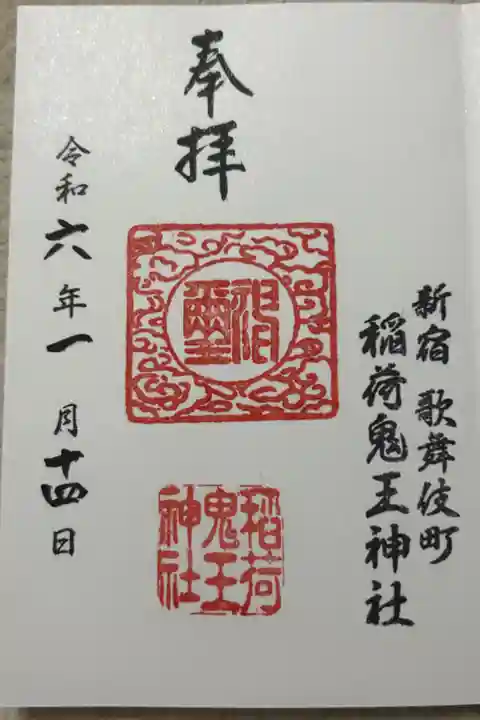 新宿 歌舞伎町
稲荷鬼王神社
奉拝
稲荷
鬼王
神社
令和六年一月十四日